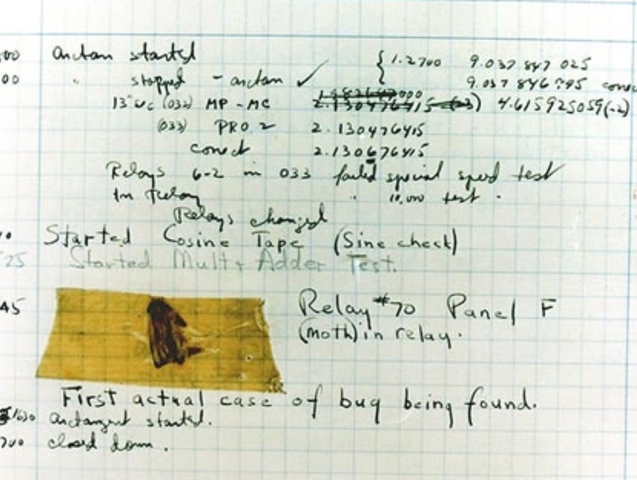 00 arctan started { 1.2700 9.037 847 025
00 " stopped - arctan ✓ 9.037 846 795 conec
13" uc (032) MP - MC 2.130476415 (-3) 4.615925059(-2)
(033) PRO 2 2.130476415
conect 2.130676415
Relays 6-2 in 033 failed special speed test
In Relay " 10.000 test.
Relays changed
Started Cosine Tape (Sine check)
25 Started Mult + Adder Test.
45 Relay #70 Panel F
(moth) in relay.
First actual case of bug being found.
1630 arctangent started.
700 closed down.